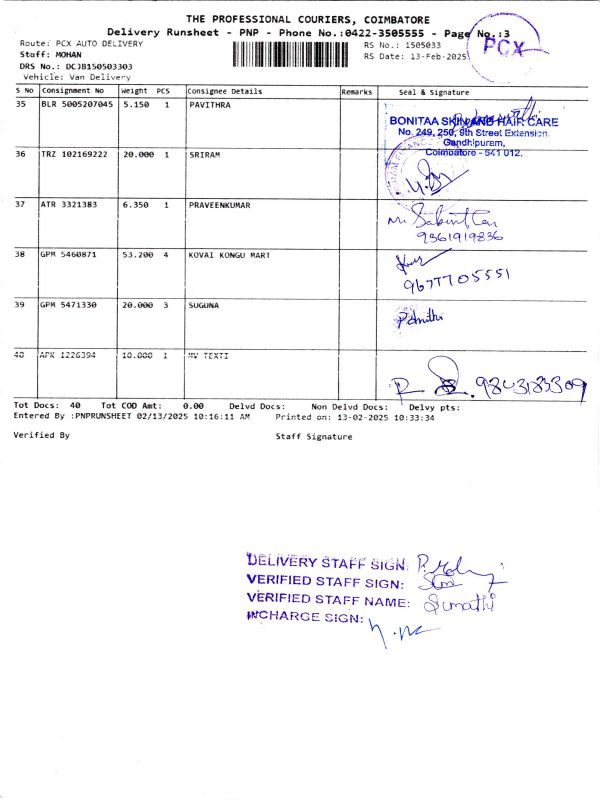 THE PROFESSIONAL COURIERS, COIMBATORE
Delivery Runsheet - PNP - Phone No.:0422-3505555 - Page No.:3
Route: PCX AUTO DELIVERY
RS No.: 1505033
PCX
Staff: MOHAN
RS Date: 13-Feb-2025
DRS No.: DCJB150503303
Vehicle: Van Delivery
S No Consignment No Weight PCS Consignee Details Remarks Seal & Signature
35 BLR 5005207045 5.150 1 PAVITHRA
BONITAA SKIN AND HAIR CARE
No. 249, 250, 9th Street Extension,
Gandhipuram,
Coimbatore - 641 012.
36 TRZ 102169222 20.000 1 SRIRAM
37 ATR 3321383 6.350 1 PRAVEENKUMAR
9361919836
38 GPM 5460871 53.200 4 KOVAI KONGU MART
9677705551
39 GPM 5471330 20.000 3 SUGUNA
40 APK 1226394 10.000 1 MV TEXTI
9843183309
Tot Docs: 40 Tot COD Amt: 0.00 Delvd Docs: Non Delvd Docs: Delvy pts:
Entered By :PNPRUNSHEET 02/13/2025 10:16:11 AM Printed on: 13-02-2025 10:33:34
Verified By Staff Signature
DELIVERY STAFF SIGN:
VERIFIED STAFF SIGN:
VERIFIED STAFF NAME: Sumathi
INCHARGE SIGN: